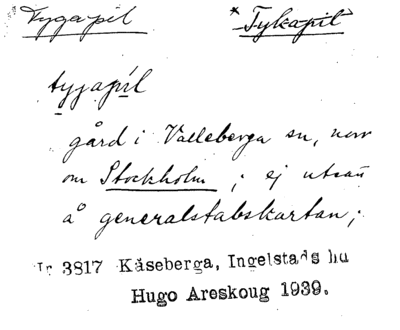 Tygapil *Tykapil
tyjapil
gård i Valleberga sn, norr
om Stockholm ; ej utsatt
å generalstabskartan;
3817 Kåseberga, Ingelstads hd
Hugo Areskoug 1939.